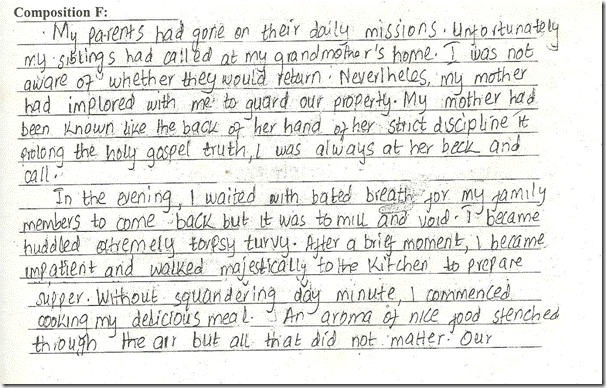 Composition F:
. My parents had gone on their daily missions. Unfortunately
my siblings had called at my grandmother's home. I was not
aware of whether they would return. Nevertheles, my mother
had implored with me to guard our property. My mother had
been known like the back of her hand of her strict discipline It
prolong the holy gospel truth, I was always at her beck and
call.
In the evening, I waited with bated breath for my family
members to come back but it was to mill and void. I became
huddled extremely torpsy turvy. After a brief moment, I became
impatient and walked majestically to the Kitchen to prepare
supper. Without squandering day minute, I commenced
cooking my delicious meal. An aroma of nice food stenched
through the air but all that did not matter. Our